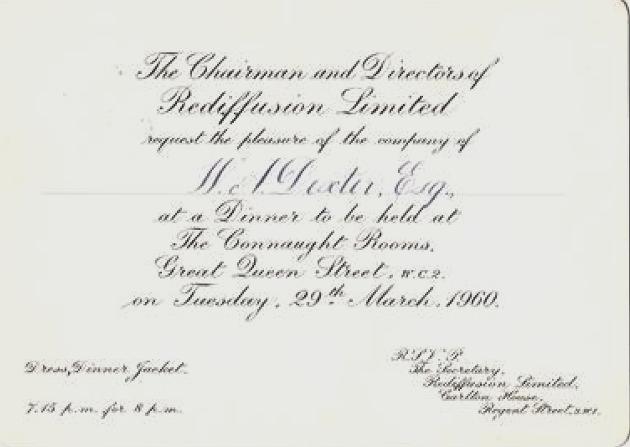 The Chairman and Directors of
Rediffusion Limited
request the pleasure of the company of
Dexter, Esq.,
at a Dinner to be held at
The Connaught Rooms,
Great Queen Street, W.C.2.
on Tuesday, 29th March, 1960.
Dress, Dinner Jacket.
7.15 p.m. for 8 p.m.
R.S.V.P.
The Secretary,
Rediffusion Limited,
Carlton House,
Regent Street, S.W.1.